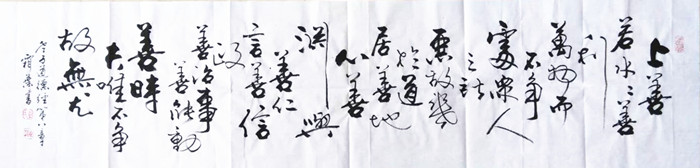 上善
若水〻善
利
萬物而
不争
處衆人
之所
惡故幾
於道
居善地
心善
渊與
善仁
言善信
政
善治事
善能動
善時
夫唯不争
故無尤
老子道德經第八章
書